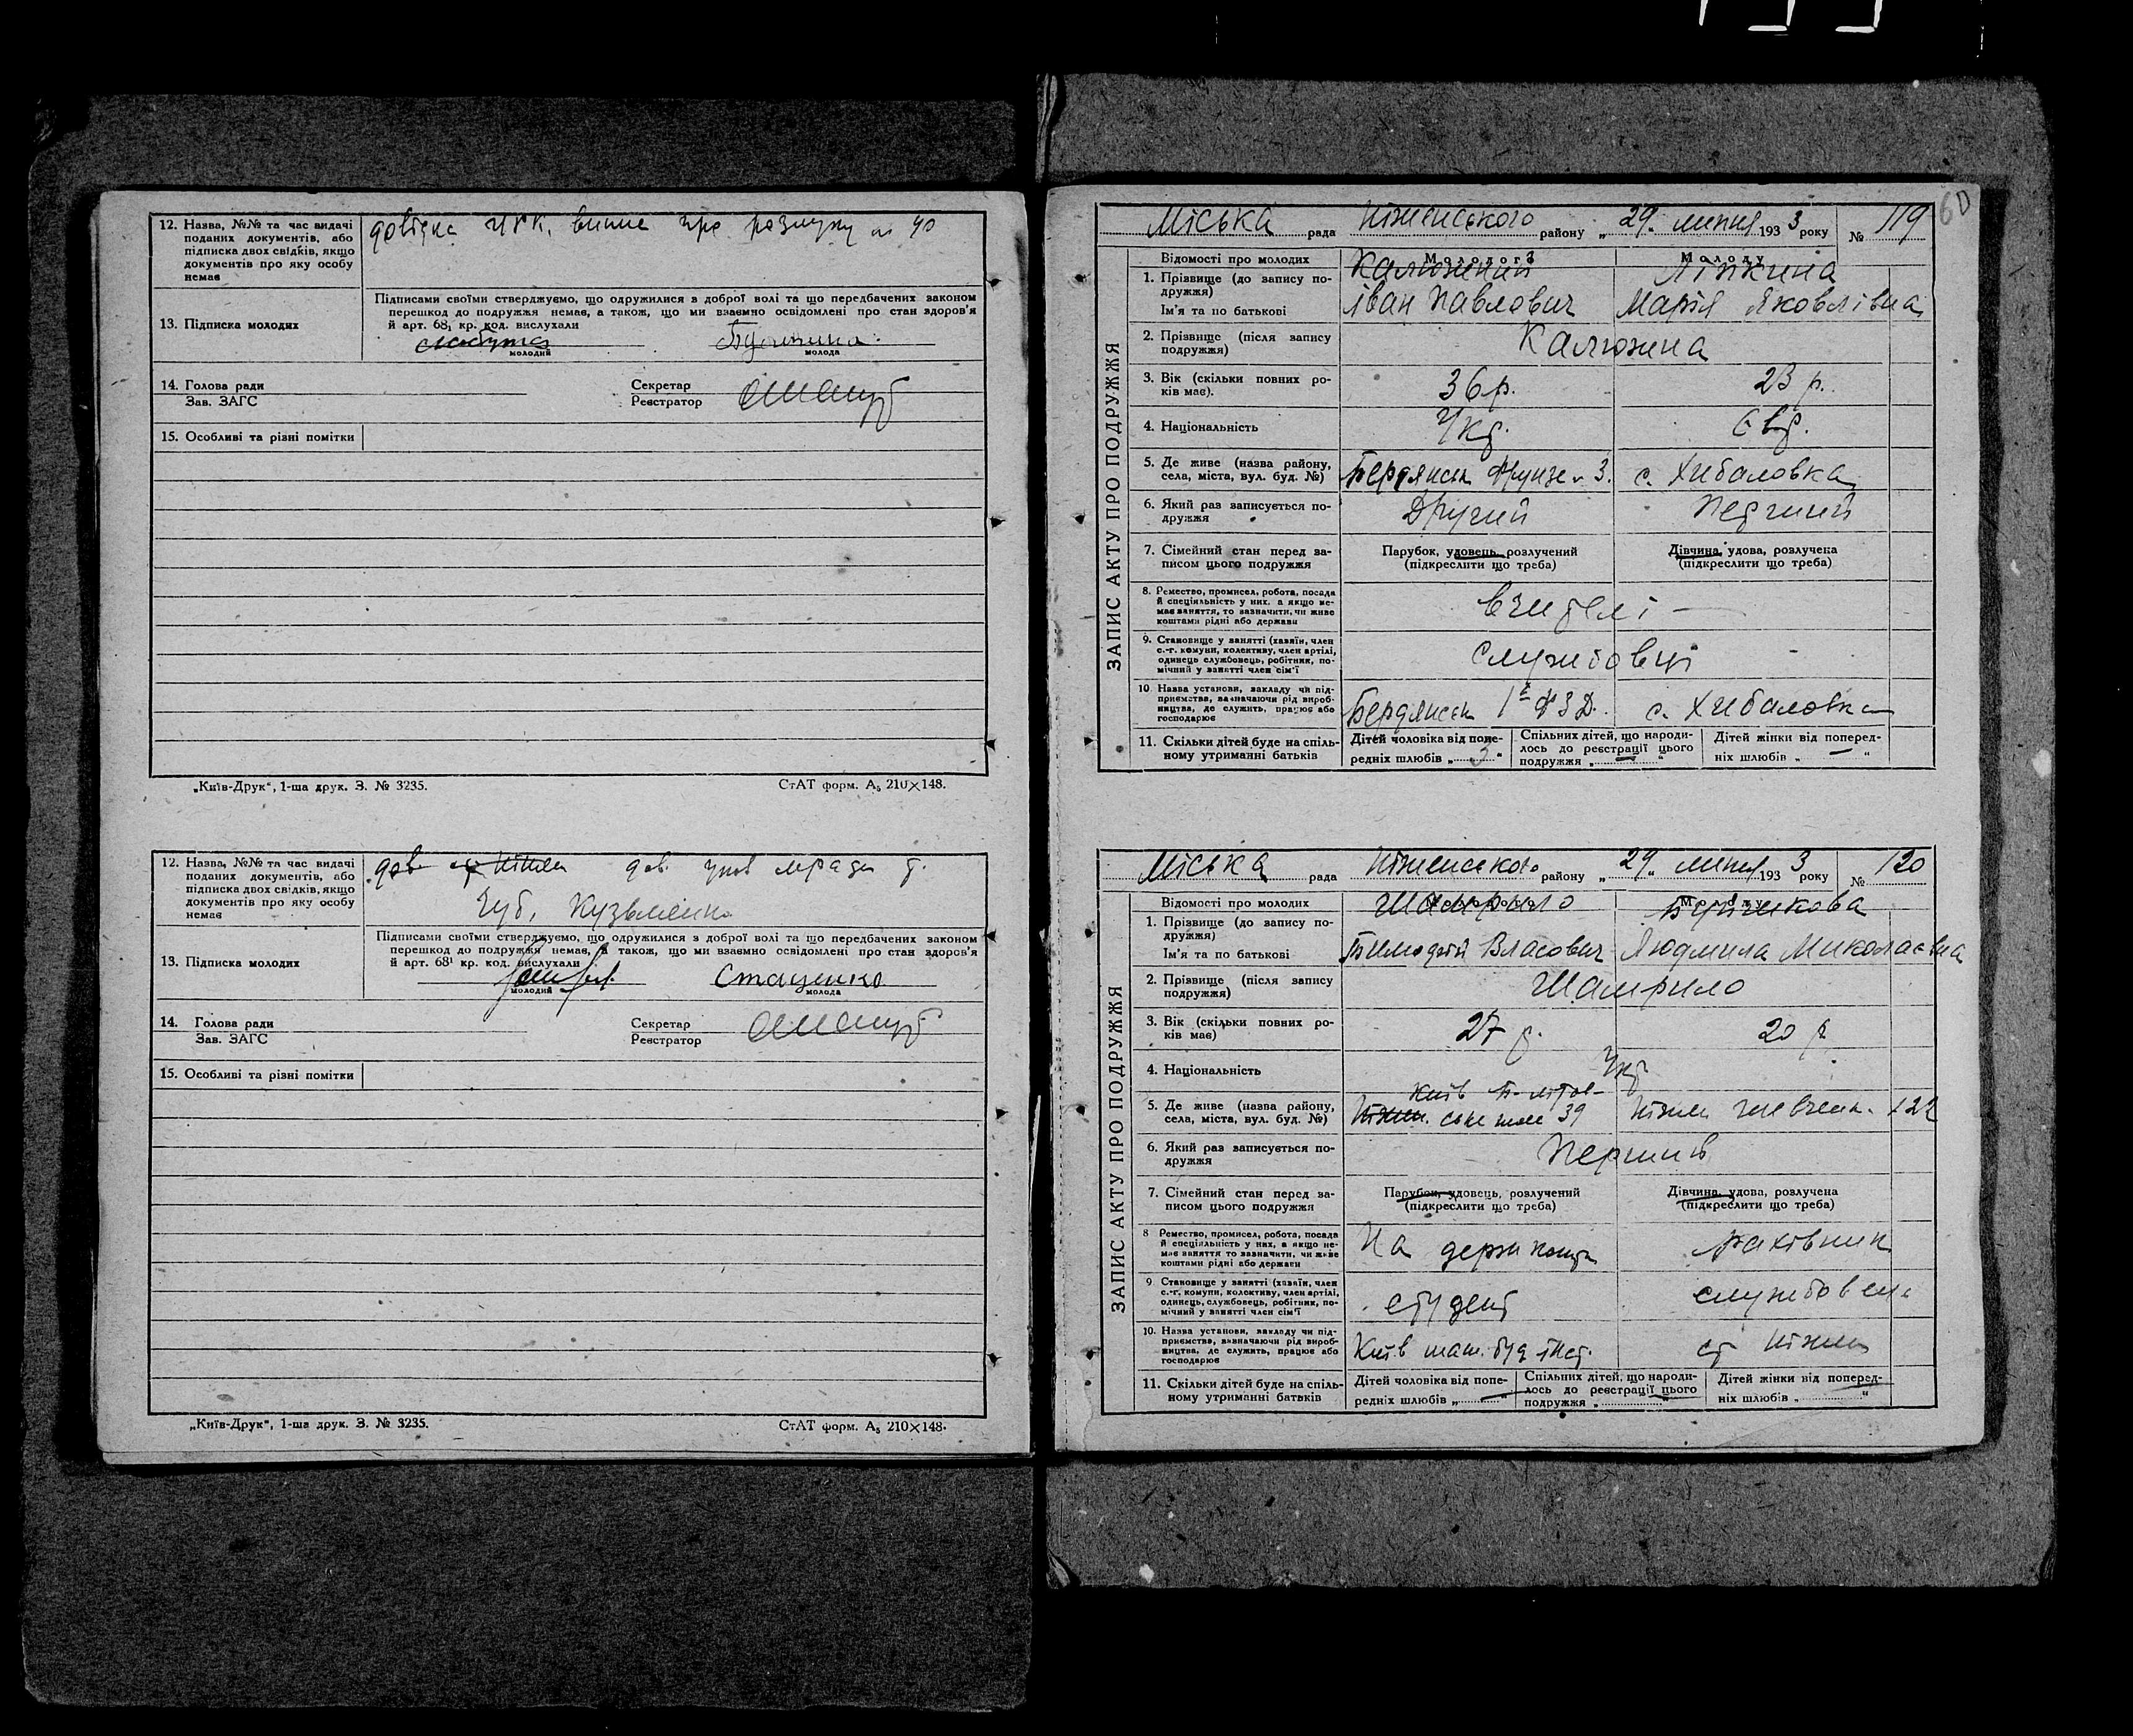 12. Назва, №№ та час видачі
поданих документів, або
підписка двох свідків, якщо
документів про яку особу
немає
довідка про розлуку № 40
13. Підписка молодих
Підписами своїми стверджуємо, що одружилися з доброї волі та що передбачених законом
перешкод до подружжя немає, а також, що ми взаємно освідомлені про стан здоров'я
й арт. 68₁ кр. код. вислухали
молодий
молода
14. Голова ради
Зав. ЗАГС
Секретар
Реєстратор
15. Особливі та різні помітки
„Київ-Друк“, 1-ша друк. З. № 3235.
СтАТ форм. А₅ 210×148.
12. Назва, №№ та час видачі
поданих документів, або
підписка двох свідків, якщо
документів про яку особу
немає
13. Підписка молодих
Підписами своїми стверджуємо, що одружилися з доброї волі та що передбачених законом
перешкод до подружжя немає, а також, що ми взаємно освідомлені про стан здоров'я
й арт. 68¹ кр. код. вислухали
молодий
Стаценко
молода
14. Голова ради
Зав. ЗАГС
Секретар
Реєстратор
15. Особливі та різні помітки
„Київ-Друк“, 1-ша друк. З. № 3235.
СтАТ форм. А₅ 210×148.
60
ЗАПИС АКТУ ПРО ПОДРУЖЖЯ
Міська рада Ніженського району „29„ липня 1933 року № 119
Відомості про молодих
Молодого
Молоду
1. Прізвище (до запису по-
дружжя)
Ім'я та по батькові
Калюжний
Іван Павлович
Ліпкіна
Марія Яковлівна
2. Прізвище (після запису
подружжя)
Калюжина
3. Вік (скільки повних ро-
ків має).
36 р.
23 р.
4. Національність
Укр.
Євр.
5. Де живе (назва району,
села, міста, вул. буд. №)
Бердянськ Фрунзе № 3.
с. Хибаловка
6. Який раз записується по-
дружжя
Другий
Перший
7. Сімейний стан перед за-
писом цього подружжя
Парубок, удовець, розлучений
(підкреслити що треба)
Дівчина, удова, розлучена
(підкреслити що треба)
8. Ремество, промисел, робота, посада
й спеціяльність у них, а якщо не-
має заняття, то зазначити, чи живе
коштами рідні або держави
вчителі —
9. Становище у занятті (хазяїн, член
с.-г. комуни, колективу, член артілі,
одинець службовець, робітник, по-
мічний у занятті член сім'ї
службовці
10. Назва установи, закладу чи під-
приємства, зазначаючи рід вироб-
ництва, де служить, працює або
господарює
Бердянськ
с. Хибаловка
11. Скільки дітей буде на спіль-
ному утриманні батьків
Дітей чоловіка від попе-
редніх шлюбів „ 3 “
Спільних дітей, що народи-
лось до реєстрації цього
подружжя „ — “
Дітей жінки від поперед-
ніх шлюбів „ — “
ЗАПИС АКТУ ПРО ПОДРУЖЖЯ
Міська рада Ніженського району „29„ липня 1933 року № 120
Відомості про молодих
1. Прізвище (до запису по-
дружжя)
Ім'я та по батькові
Шамрило
Власович
Людмила Миколаєвна
2. Прізвище (після запису
подружжя)
Шамрило
3. Вік (скільки повних ро-
ків має)
27 р.
20 р
4. Національність
Укр
5. Де живе (назва району,
села, міста, вул. буд. №)
Київ
39
Ніжин Шевченк. 122
6. Який раз записується по-
дружжя
Перший
7. Сімейний стан перед за-
писом цього подружжя
Парубок, удовець, розлучений
(підкреслити що треба)
Дівчина, удова, розлучена
(підкреслити що треба)
8 Ремество, промисел, робота, посада
й спеціяльність у них, а якщо не-
має заняття то зазначити, чи живе
коштами рідні або держави
На держ кошти
рахівник
9. Становище у занятті (хазяїн, член
с.-г. комуни, колективу, член артілі,
одинець, службовець, робітник, по-
мічний у занятті член сім'ї
студент
службовець
10. Назва установи, закладу чи під-
приємства, зазначаючи рід вироб-
ництва, де служить, працює або
господарює
Київ маш. буд інст.
ст Ніжин
11. Скільки дітей буде на спіль-
ному утриманні батьків
Дітей чоловіка від попе-
редніх шлюбів „ — “
Спільних дітей, що народи-
лось до реєстрації цього
подружжя „ — “
Дітей жінки від поперед-
ніх шлюбів „ — “